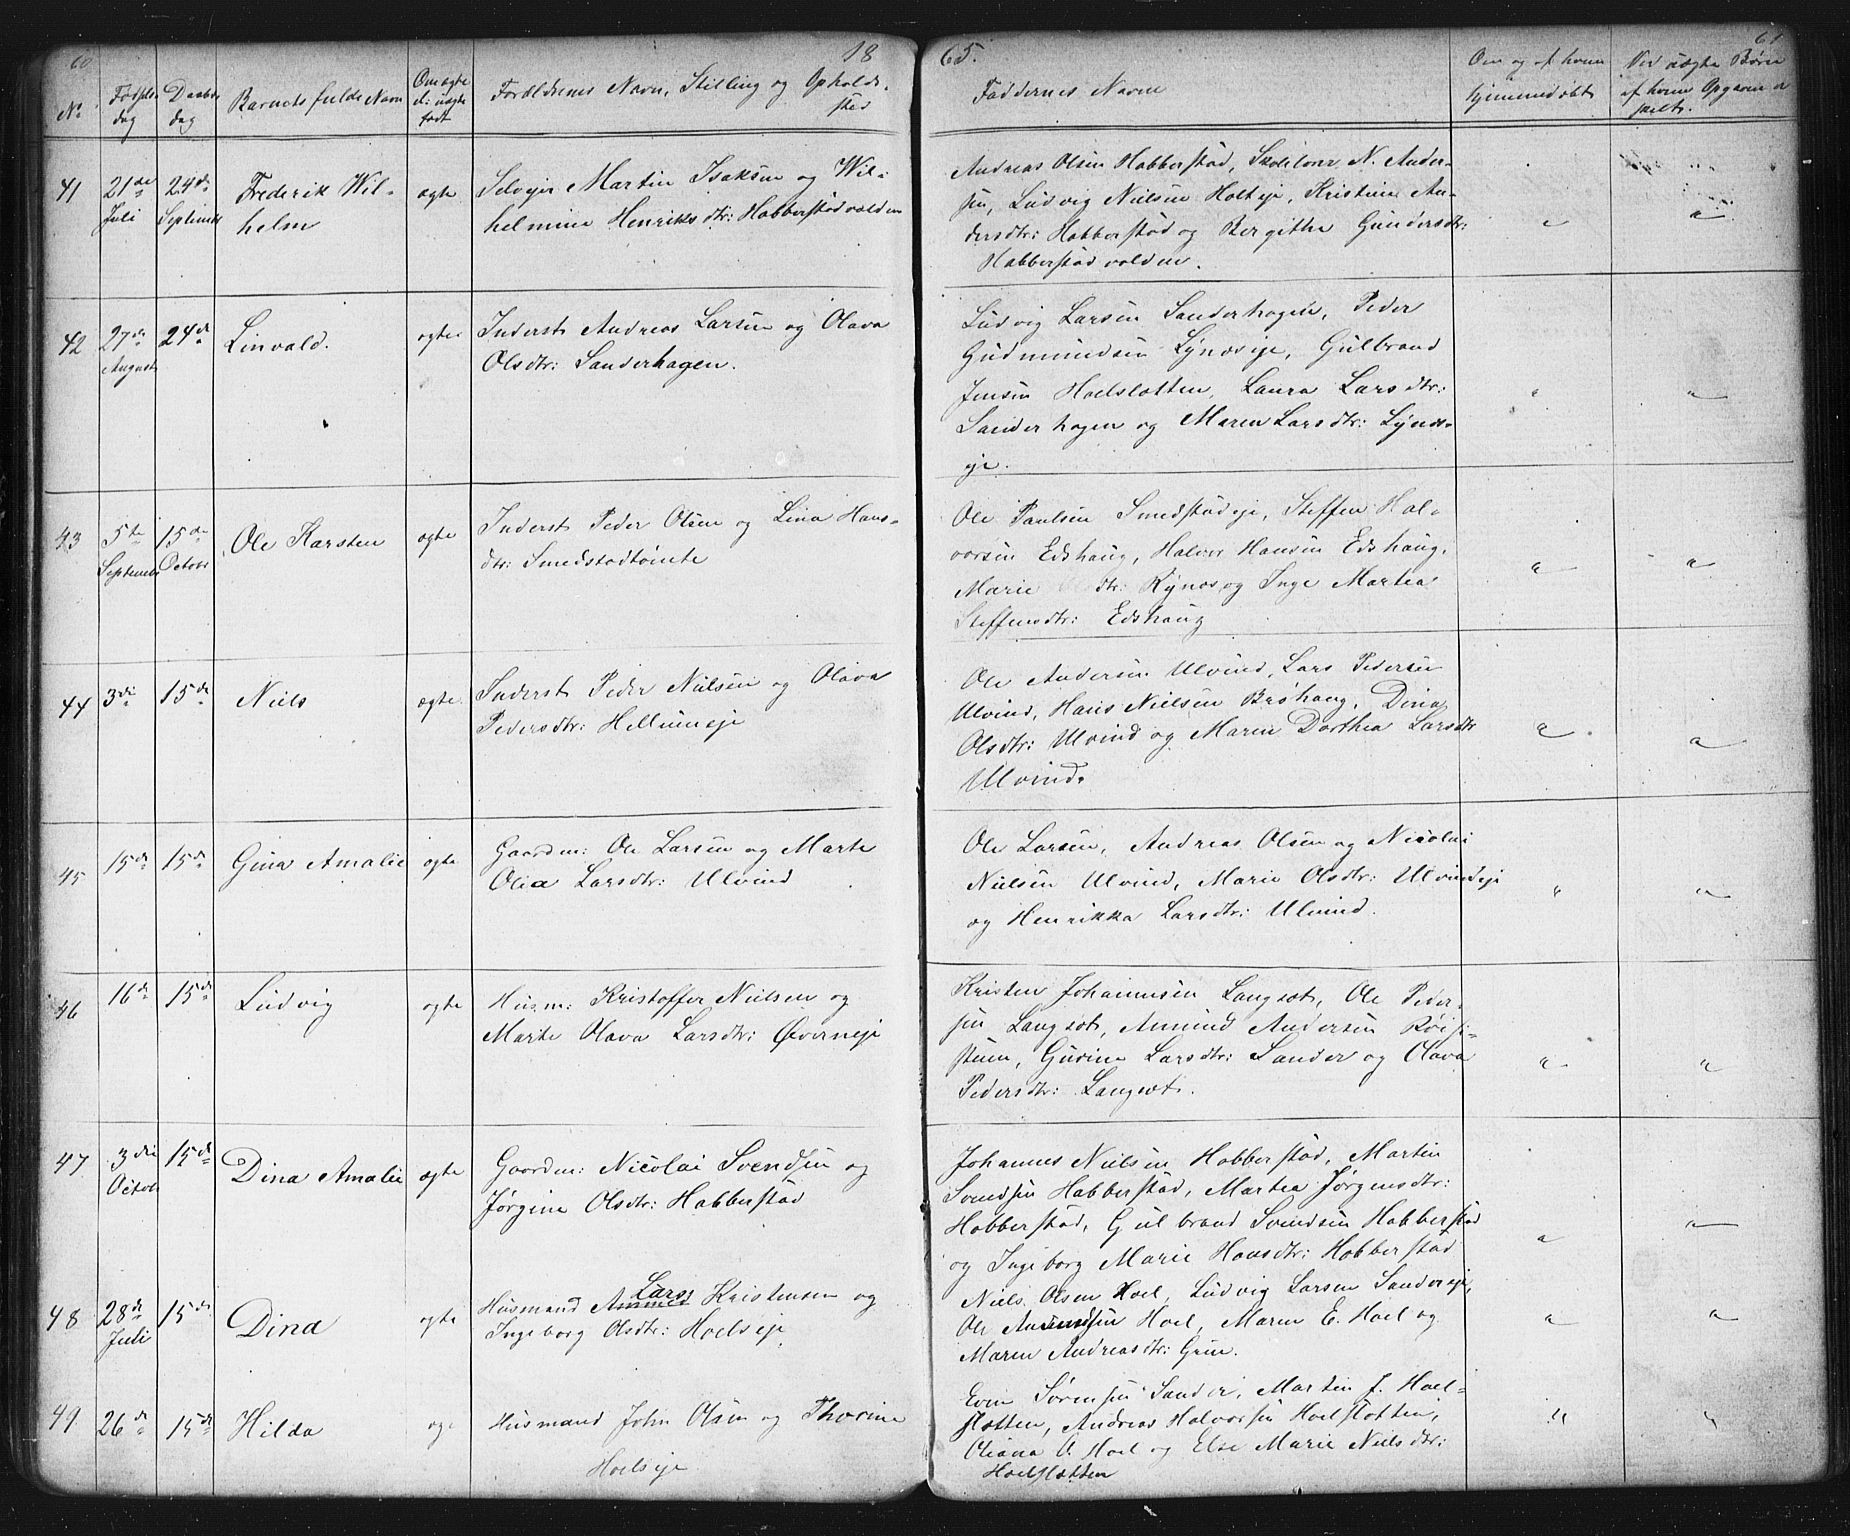 60
18
65.
61
No
Fødsels-
dag
Daabs
dag
Barnets fulde Navn
Om ægte
el: uægte
født
Forældrenes Navn, Stilling og Opholds-
sted
Faddernes Navne
Om og af hvem
hjemmedøbt
Ved uægte Børn
af hvem Opgaven er
skelt.
41
21de
Juli
24de
Septembr
Frederik Wil-
helm
ægte
Selveier Martin Isaksen og Wil-
helmine Henriksdtr: Habberstadvolden
Andreas Olsen Habberstad, Skolelærer N. Ander-
sen, Ludvig Nielsen Holteje, Kristine An-
dersdtr: Habberstad og Bergithe Gundersdtr:
Habberstadvolden.
42
27de
August
24de
Linvald.
ægte
Inderst Andreas Larsen og Olava
Olsdtr: Sanderhagen.
Ludvig Larsen Sanderhagen, Peder
Gudmundsen Lynæseje, Gulbrand
Jensen Hoelslotten, Laura Larsdtr:
Sanderhagen og Maren Larsdtr: Lynæs-
eje.
43
5te
Septembr
15de
Octobr
Ole Karsten
ægte
Inderst Peder Olsen og Lina Hans-
dtr: Smedstadtomte
Ole Paulsen Smedstadeje, Steffen Hal-
vorsen Edshaug, Halvor Hansen Edshaug,
Marie dtr: Rynæs og Inge Martea
Steffensdtr: Edshaug
44
3die
15de
Niels
ægte
Inderst Peder Nielsen og Olava
Pedersdtr: Hellumeje
Ole Andersen Ulvind, Lars Pedersen
Ulvind, Hans Nielsen Bråhaug, Dina
Olsdtr: Ulvind og Maren Dorthea Larsdtr
Ulvind.
45
15de
15de
Gina Amalie
ægte
Gaardm: Ole Larsen og Marte
Olia Larsdtr: Ulvind
Ole Larsen, Andreas Olsen og Nicolai
Nielsen Ulvind, Marie Olsdtr: Ulvindeje
og Henrikka Larsdtr: Ulvind.
46
16de
15de
Ludvig
ægte
Husm: Kristoffer Nielsen og
Marte Olava Larsdtr: Øverneje
Kristen Johannesen Langsæt, Ole Peder-
sen Langsæt, Amund Andersen Røisi-
stuen, Gurine Larsdtr: Sander og Olava
Pedersdtr: Langsæt.
47
3die
Octob
15de
Dina Amalie
ægte
Gaardm: Nicolai Svendsen og
Jørgine Olsdtr: Habberstad
Johannes Nielsen Habberstad, Martin
Svendsen Habberstad, Martea Jørgensdtr:
Habberstad, Gulbrand Svendsen Habberstad
og Ingeborg Marie Hansdtr: Habberstad
48
28de
Juli
15de
Dina
ægte
Lars
Husmand Kristensen og
Ingeborg Olsdtr: Hoelseje
Niels Olsen Hoel, Ludvig Larsen Sandereje,
Ole Amundsen Hoel, Maren E. Hoel og
Maren Andreasdtr: Grue.
49
26de
15de
Hilda
ægte
Husmand John Olsen og Thorine
Hoelseje
Even Sørensen Sander, Martin J. Hoel-
slotten, Andreas Halvorsen Hoelslotten,
Oliana O. Hoel og Else Marie Nielsdtr:
Hoelslotten